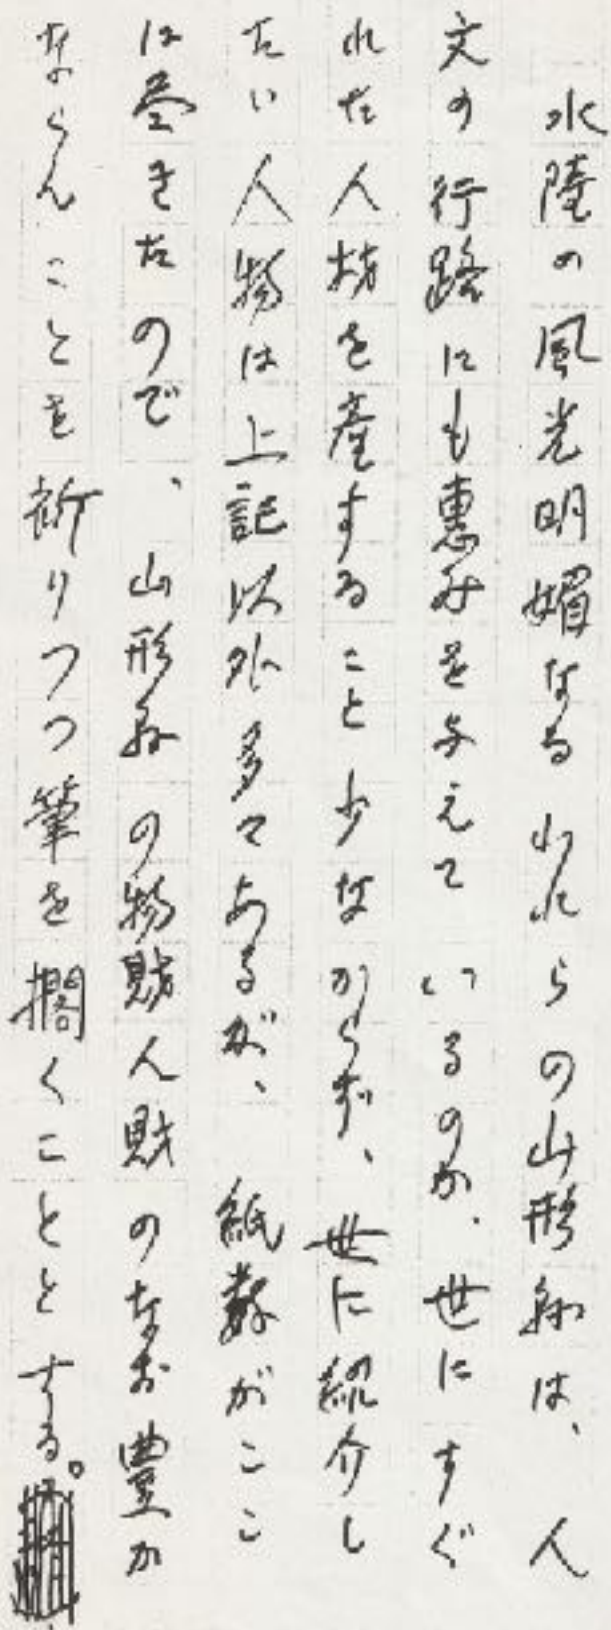 水陸の風光明媚なるわれらの山形県は、人
文の行路にも恵みを与えているのか、世にすぐ
れた人材を産すること少なからず、世に紹介し
たい人物は上記以外多々あるが、紙数がここ
は尽きたので、山形県の物財人財のなお豊か
ならんことを祈りつつ筆を擱くこととする。